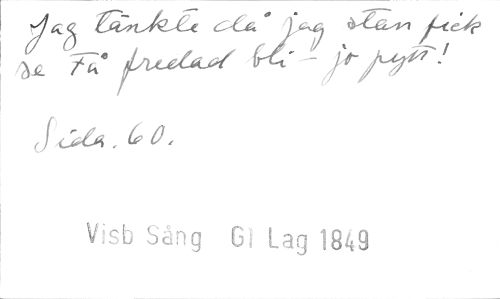 Jag tänkte då jag stan fick
se Få fredad bli - jo pytt!
Sida. 60.
Visb Sång Gl Lag 1849